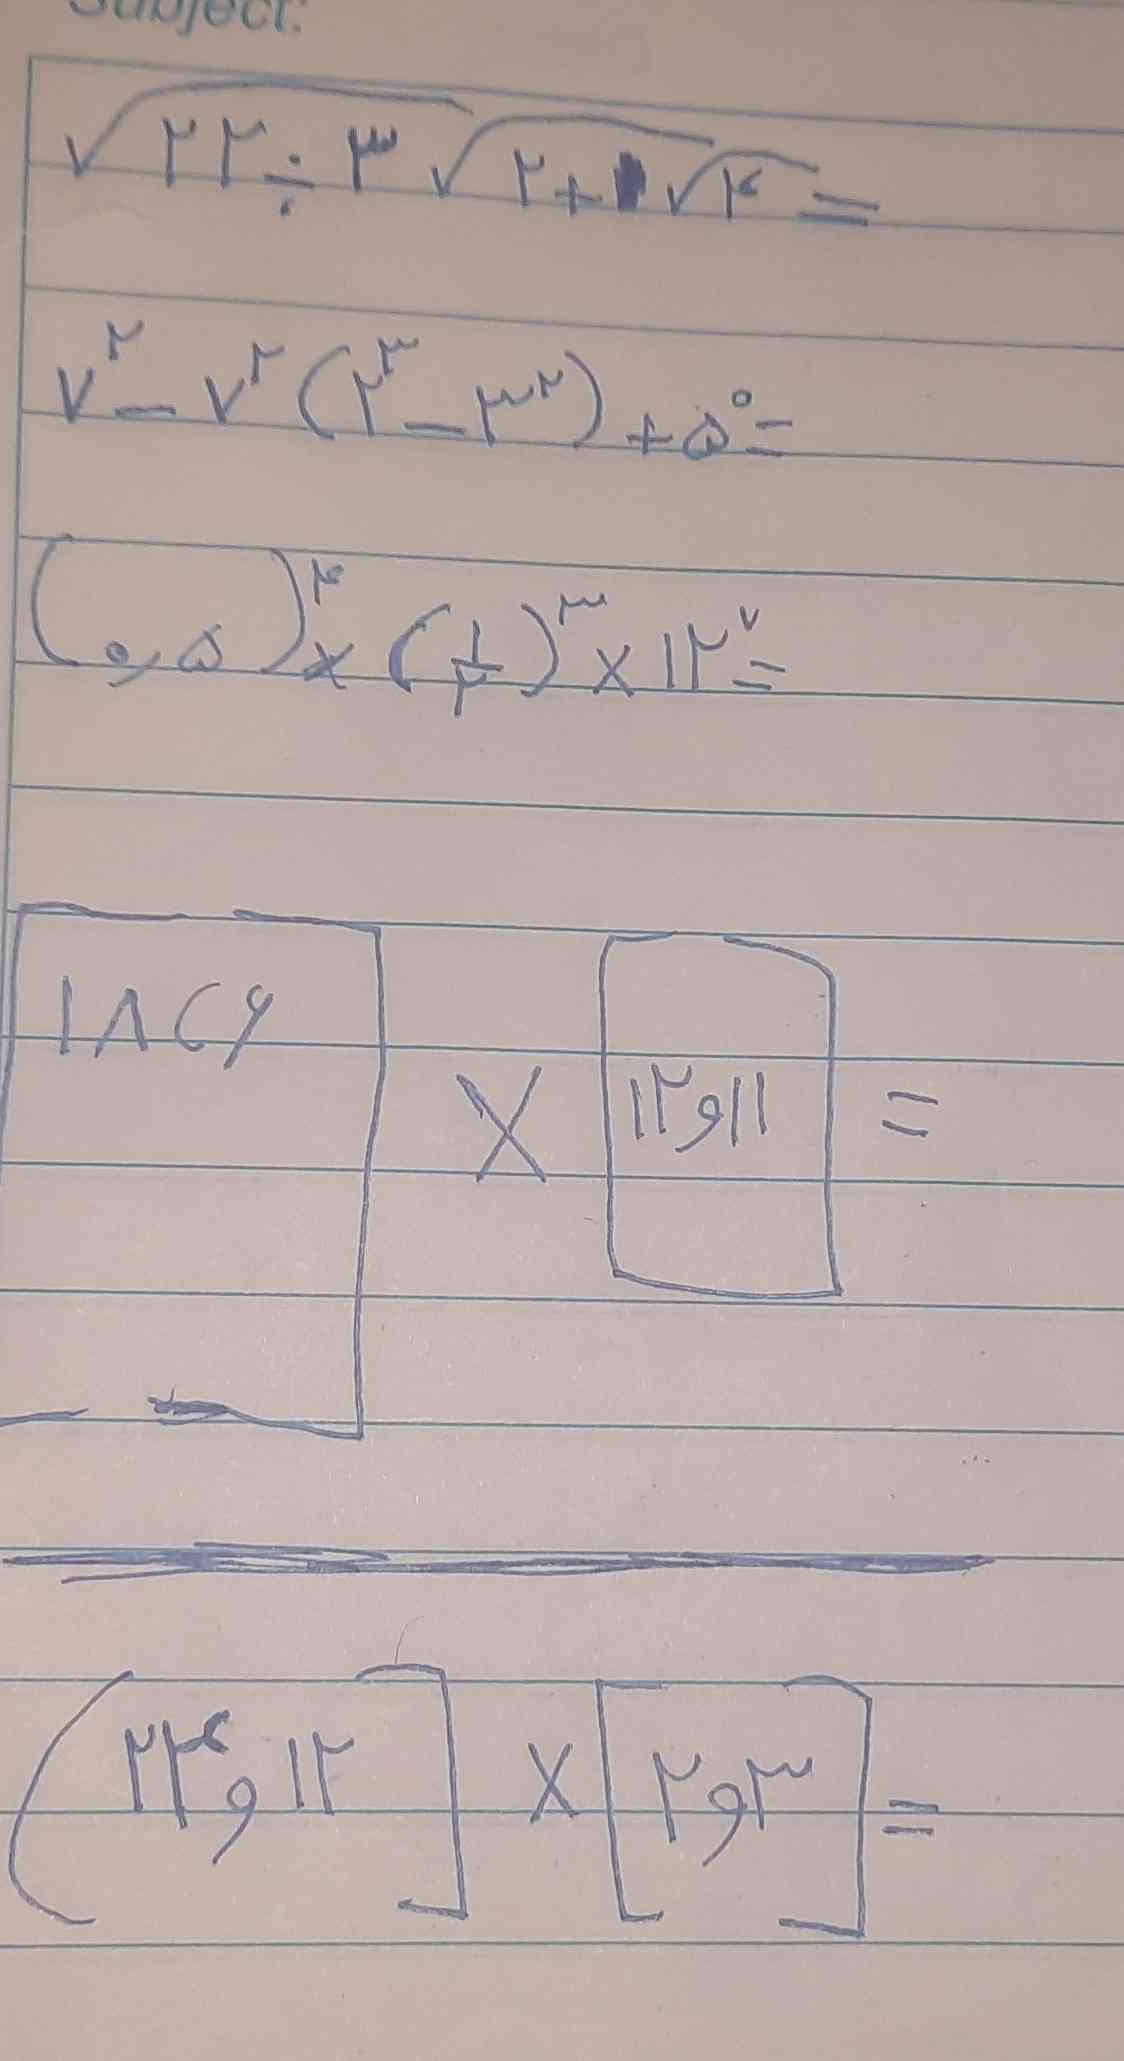 Subject:
√۲۲ ÷ ۳ √۲ + √۴ =
۷^۲ - ۷^۲ (۲^۳ - ۳^۲) + ۵^۰ =
(۰,۵)^۴ × (۱/۲)^۳ × ۱۲^۷ =
۱۸۲۶ × ۱۲و۱۱ =
(۲۲۴و۱۲] × [۲و۳] =